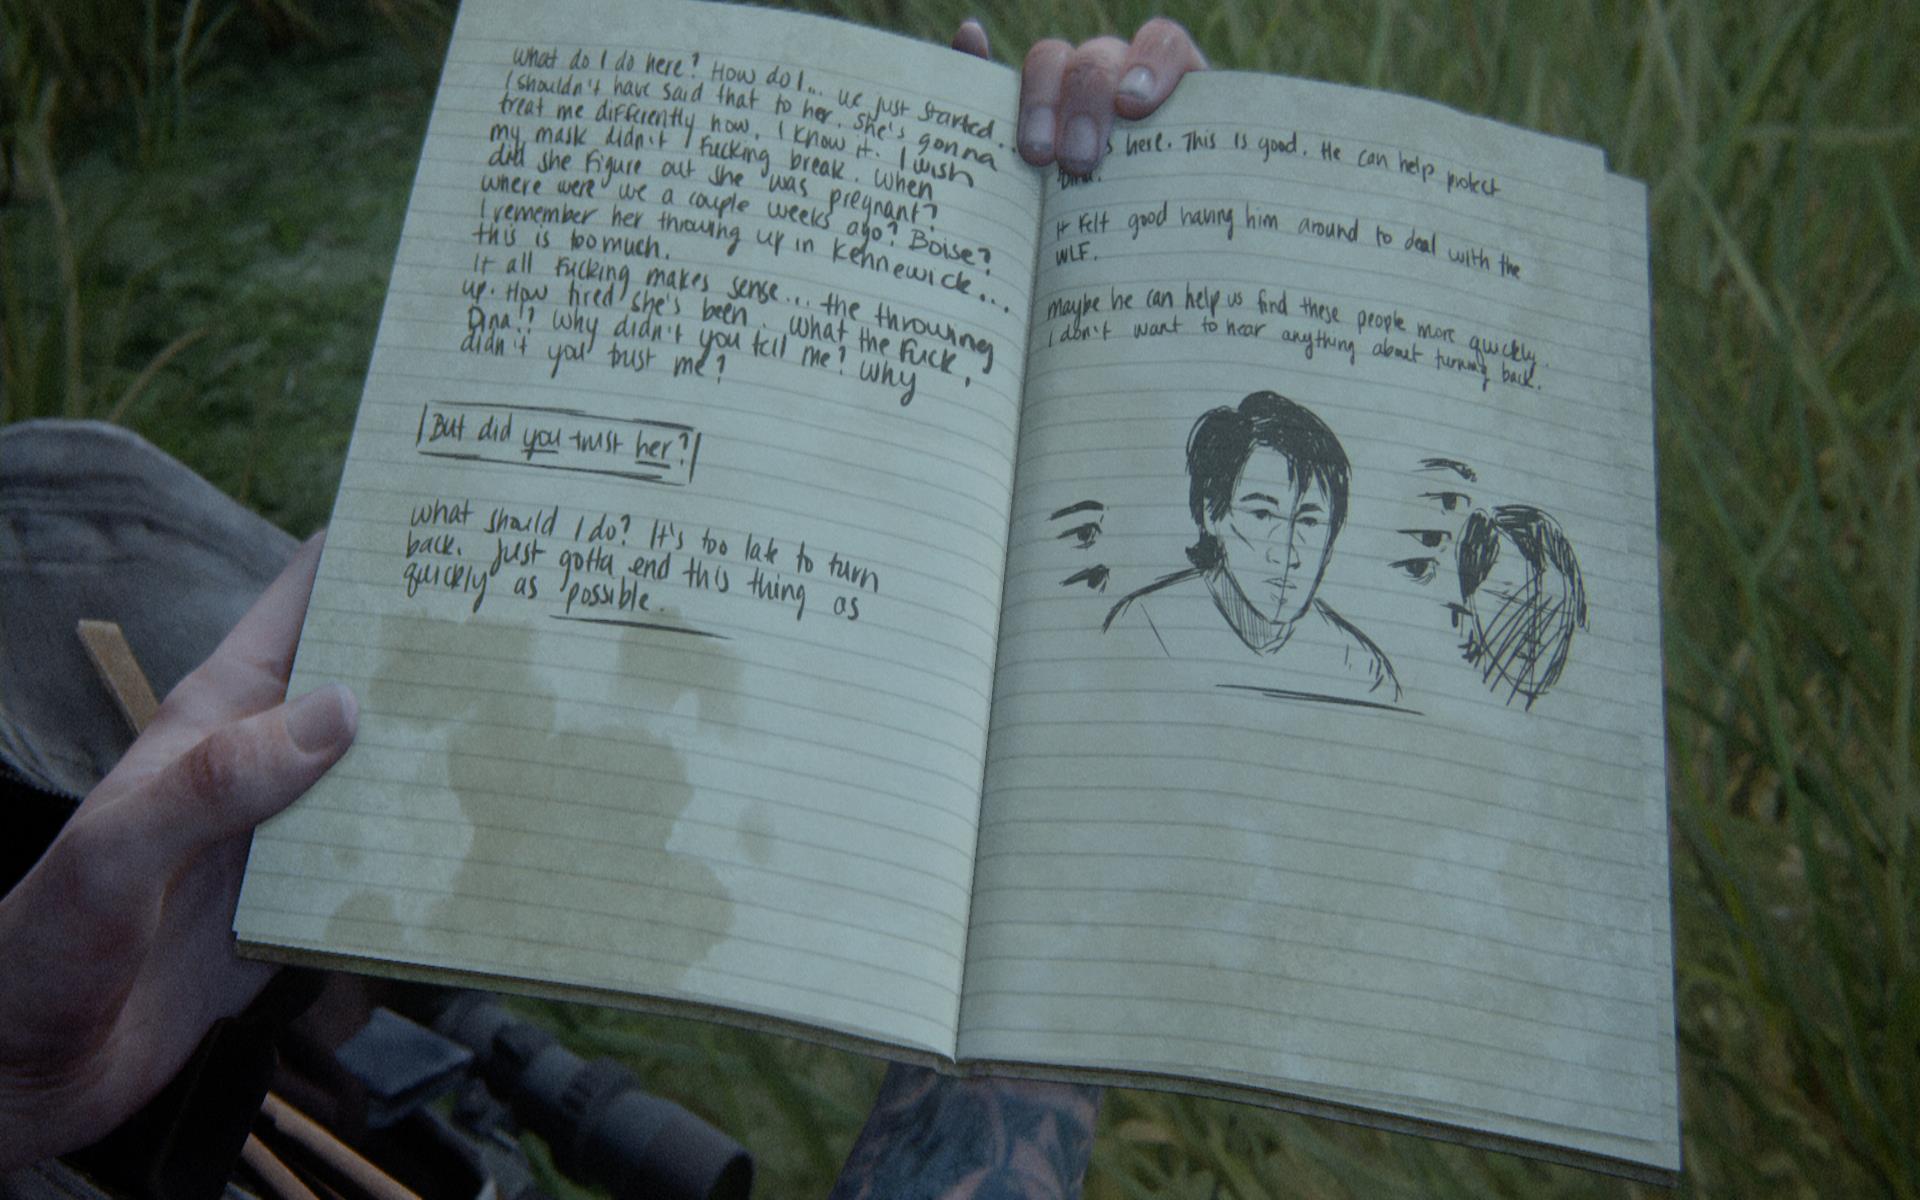 What do I do here? How do I... we just started.
I shouldn't have said that to her. She's gonna
treat me differently now. I know it. I wish
my mask didn't fucking break. When
did she figure out she was pregnant?
Where were we a couple weeks ago? Boise?
I remember her throwing up in Kennewick...
this is too much.
It all fucking makes sense... the throwing
up. How tired she's been. What the fuck,
Dina!? Why didn't you tell me? Why
didn't you trust me?
But did you trust her?
What should I do? It's too late to turn
back. Just gotta end this thing as
quickly as possible.
here. This is good. He can help protect
Dina.
It felt good having him around to deal with the
WLF.
Maybe he can help us find these people more quickly.
I don't want to hear anything about turning back.